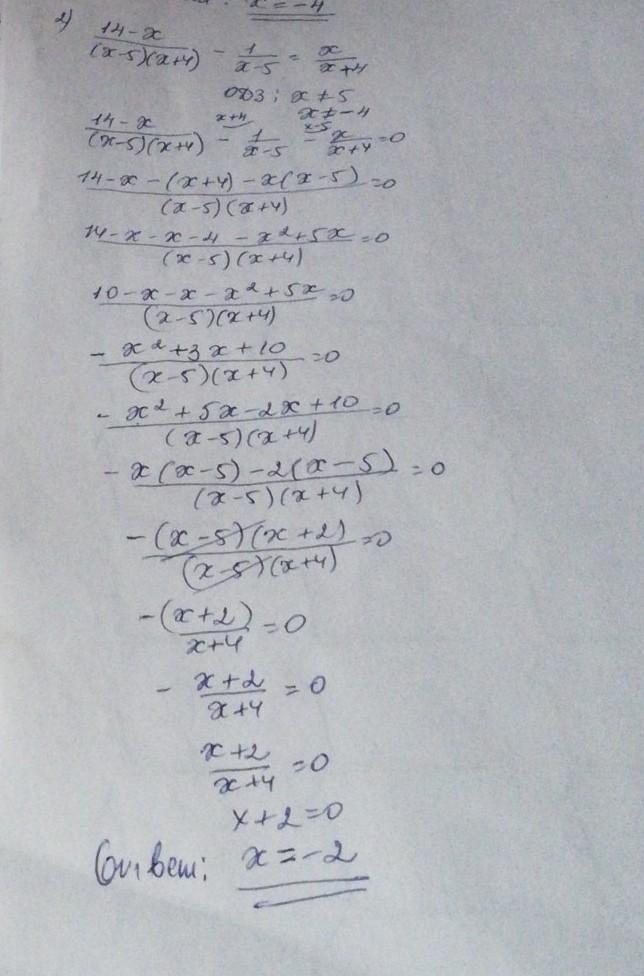 x = -4
2) \frac{14-x}{(x-5)(x+4)} - \frac{1}{x-5} = \frac{x}{x+4}
ОДЗ: x ≠ 5
x ≠ -4
\frac{14-x}{(x-5)(x+4)} - \frac{1}{x-5}^{x+4} - \frac{x}{x+4}^{x-5} = 0
\frac{14-x-(x+4)-x(x-5)}{(x-5)(x+4)} = 0
\frac{14-x-x-4-x^2+5x}{(x-5)(x+4)} = 0
\frac{10-x-x-x^2+5x}{(x-5)(x+4)} = 0
\frac{-x^2+3x+10}{(x-5)(x+4)} = 0
\frac{-x^2+5x-2x+10}{(x-5)(x+4)} = 0
\frac{-x(x-5)-2(x-5)}{(x-5)(x+4)} = 0
\frac{-(x-5)(x+2)}{(x-5)(x+4)} = 0
\frac{-(x+2)}{x+4} = 0
- \frac{x+2}{x+4} = 0
\frac{x+2}{x+4} = 0
x+2=0
Ответ: x = -2